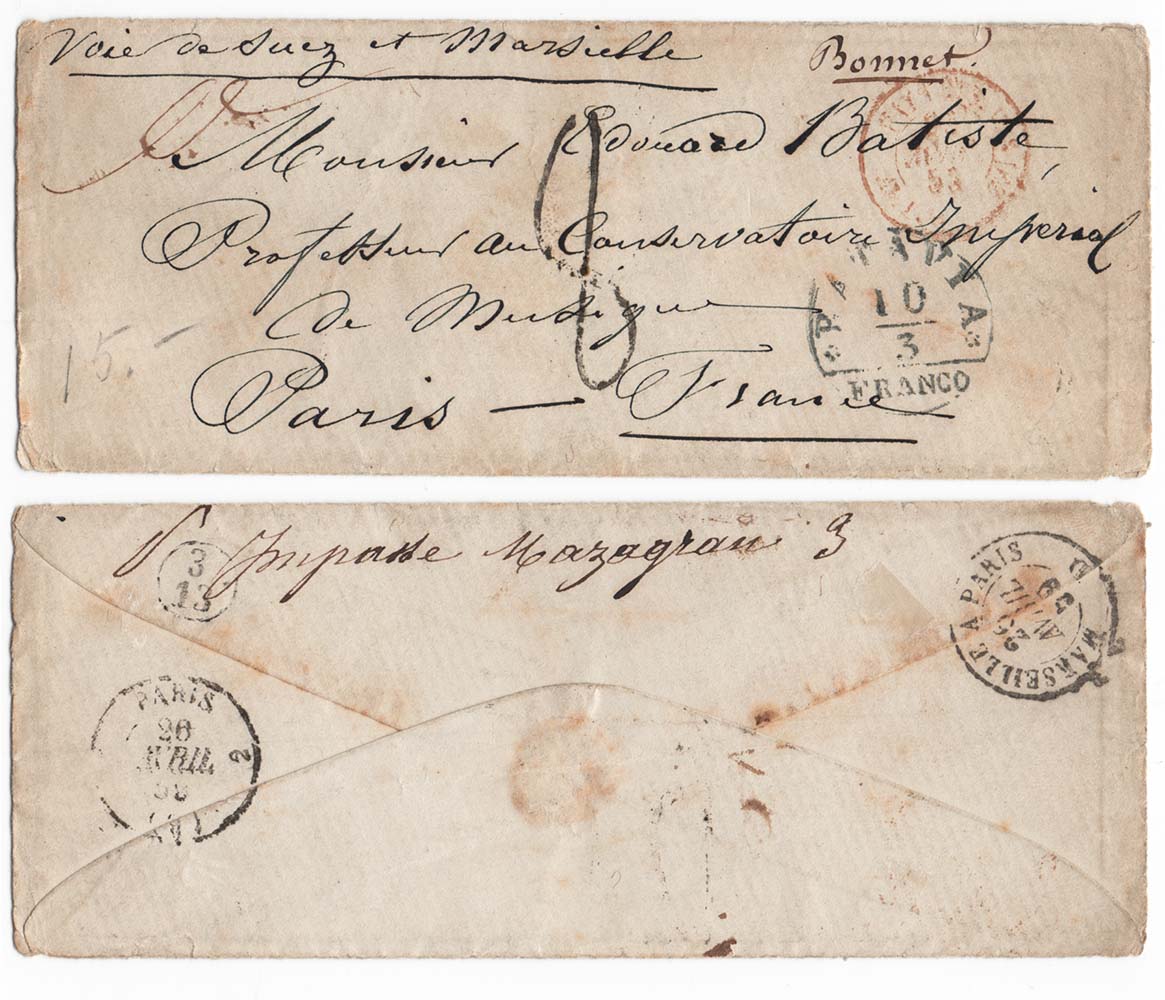 Voie de Suez et Marseille
Bonnet.
Monsieur Edouard Batiste,
Professeur au Conservatoire Imperial
de Musique
Paris — France
8
15.-
BATAVIA
10
3
FRANCO
Impasse Mazagran 3
3
13
MARSEILLE A PARIS
25
AVRIL
59
PARIS
26
AVRIL
2